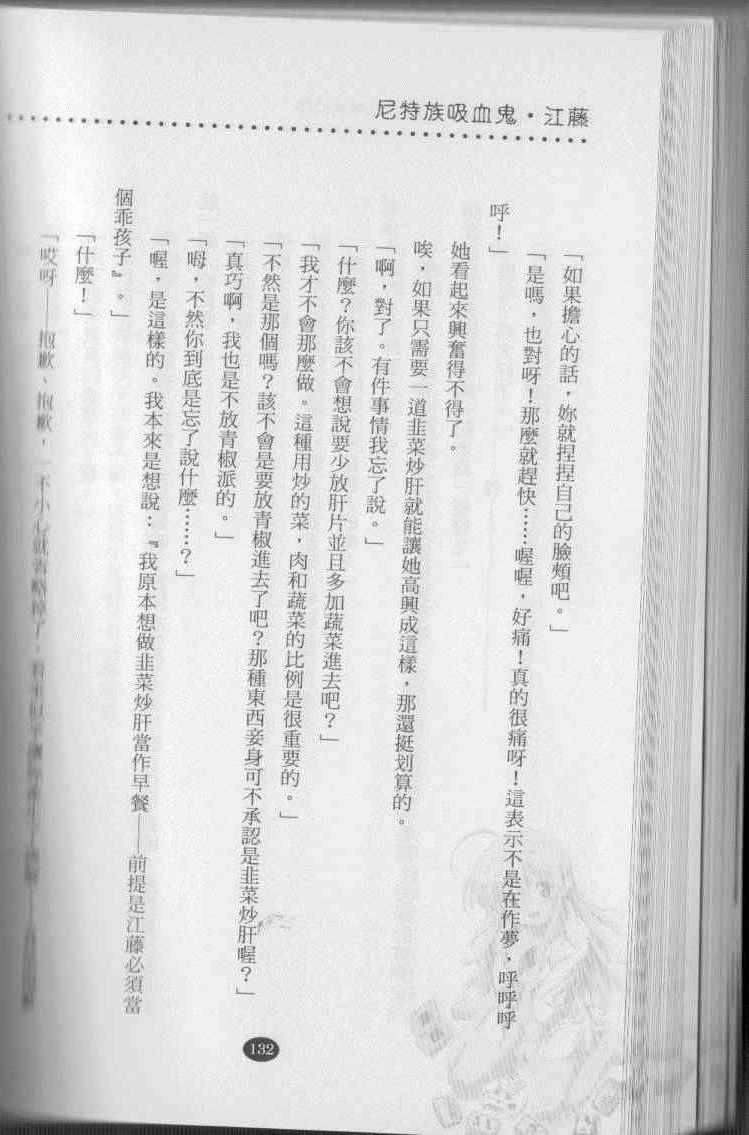 尼特族吸血鬼・江藤
「如果擔心的話，妳就捏捏自己的臉頰吧。」
「是嗎，也對呀！那麼就趕快……喔喔，好痛！真的很痛呀！這表示不是在作夢，呼呼呼
呼！」
她看起來興奮得不得了。
唉，如果只需要一道韭菜炒肝就能讓她高興成這樣，那還挺划算的。
「啊，對了。有件事情我忘了說。」
「什麼？你該不會想說要少放肝片並且多加蔬菜進去吧？」
「我才不會那麼做。這種用炒的菜，肉和蔬菜的比例是很重要的。」
「不然是那個嗎？該不會是要放青椒進去了吧？那種東西妾身可不承認是韭菜炒肝喔？」
「真巧啊，我也是不放青椒派的。」
「呣，不然你到底是忘了說什麼……？」
「喔，是這樣的。我本來是想說：『我原本想做韭菜炒肝當作早餐——前提是江藤必須當
個乖孩子』。」
「什麼！」
「哎呀——抱歉、抱歉，一不小心就
132